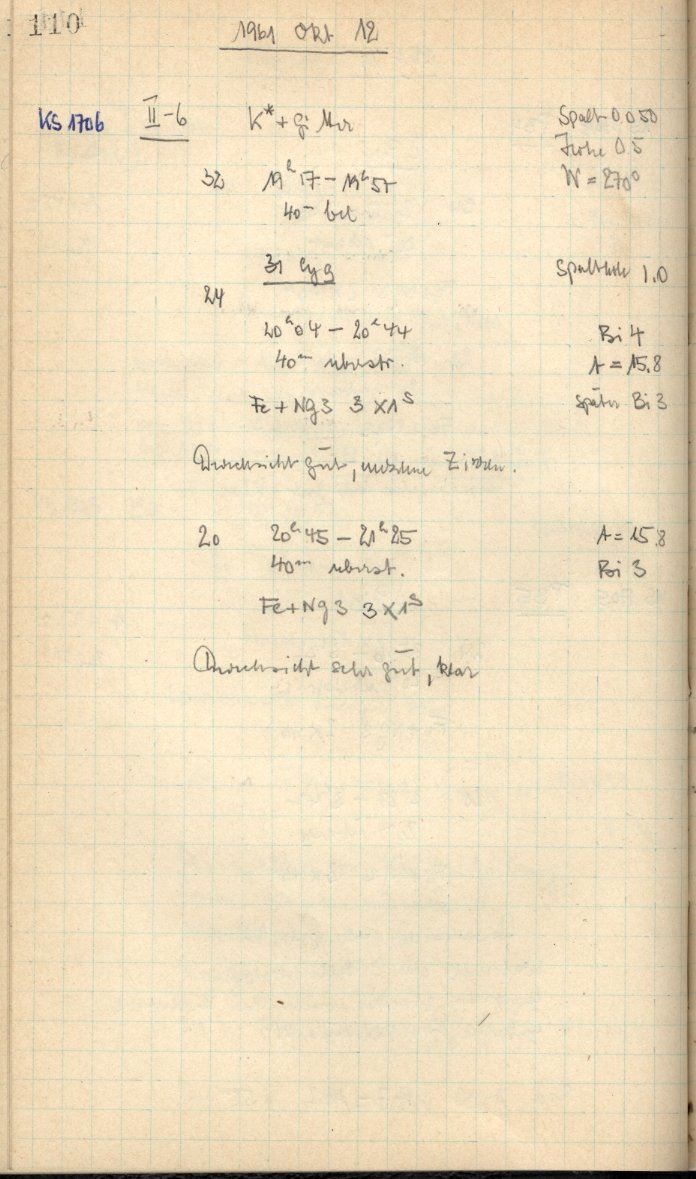 110
1961 Okt 12
KS 1706 II-6 K* + Spalt 0.050
Höhe 0.5
32 19h17 – 19h57 W = 270°
40m bel
31 Cyg Spalthöhe 1.0
24
20h04 – 20h44 Bi 4
40m überstr. A = 15.8
Fe + Ng3 3 x 1s später Bi 3
Durchsicht gut, Zirren.
20 20h45 – 21h25 A = 15.8
40m überst. Bi 3
Fe + Ng3 3 x 1s
Durchsicht sehr gut, klar